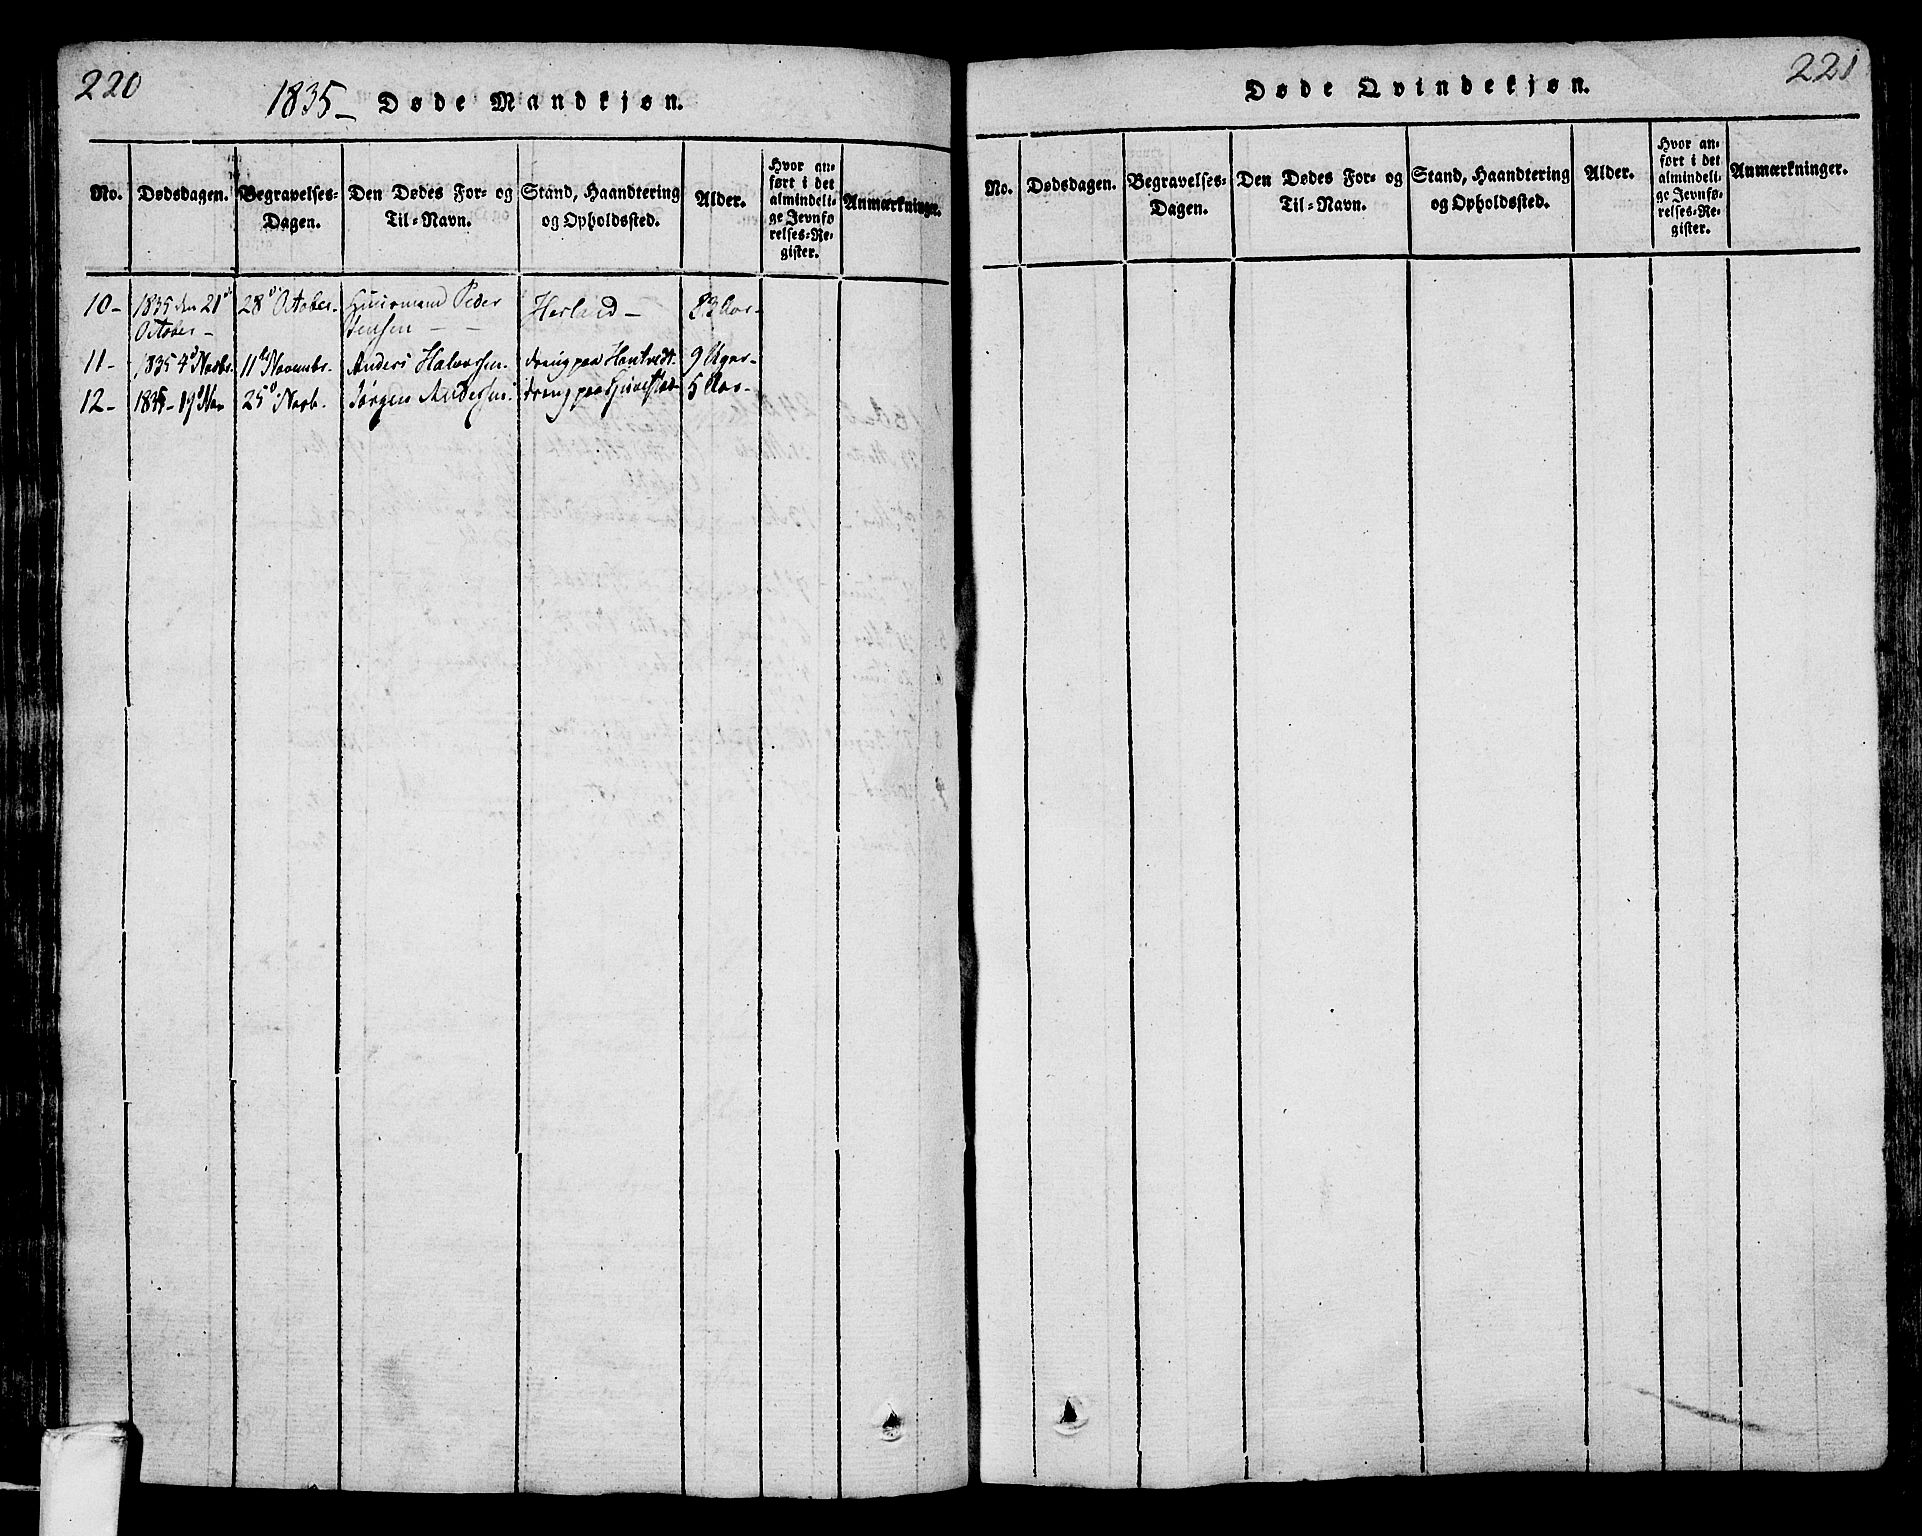 220
1835 — Døde Mandkjøn.
No.
Dødsdagen.
Begravelses-
Dagen.
Den Dødes For- og
Til-Navn.
Stand, Haandtering
og Opholdssted.
Alder.
Hvor an-
ført i det
almindeli-
ge Jevnfø
relses-Re-
gister.
Anmærkninger.
10 —
1835 den 21de
October —
28d October.
Huusmand Peder
Jensen — —
Herland —
83 Aar —
11 —
1835 4d Novbr.
11te Novembr.
Anders Halvorsen.
dreng paa
9 Uger —
12 —
1835 — 19d Nov
25d Novb.
Jørgen Andersen.
dreng paa
5 Aar —
221
Døde Qvindekjøn.
No.
Dødsdagen.
Begravelses-
Dagen.
Den Dødes For- og
Til-Navn.
Stand, Haandtering
og Opholdssted.
Alder.
Hvor an-
ført i det
almindeli-
ge Jevnfø-
relses-Re-
gister.
Anmærkninger.